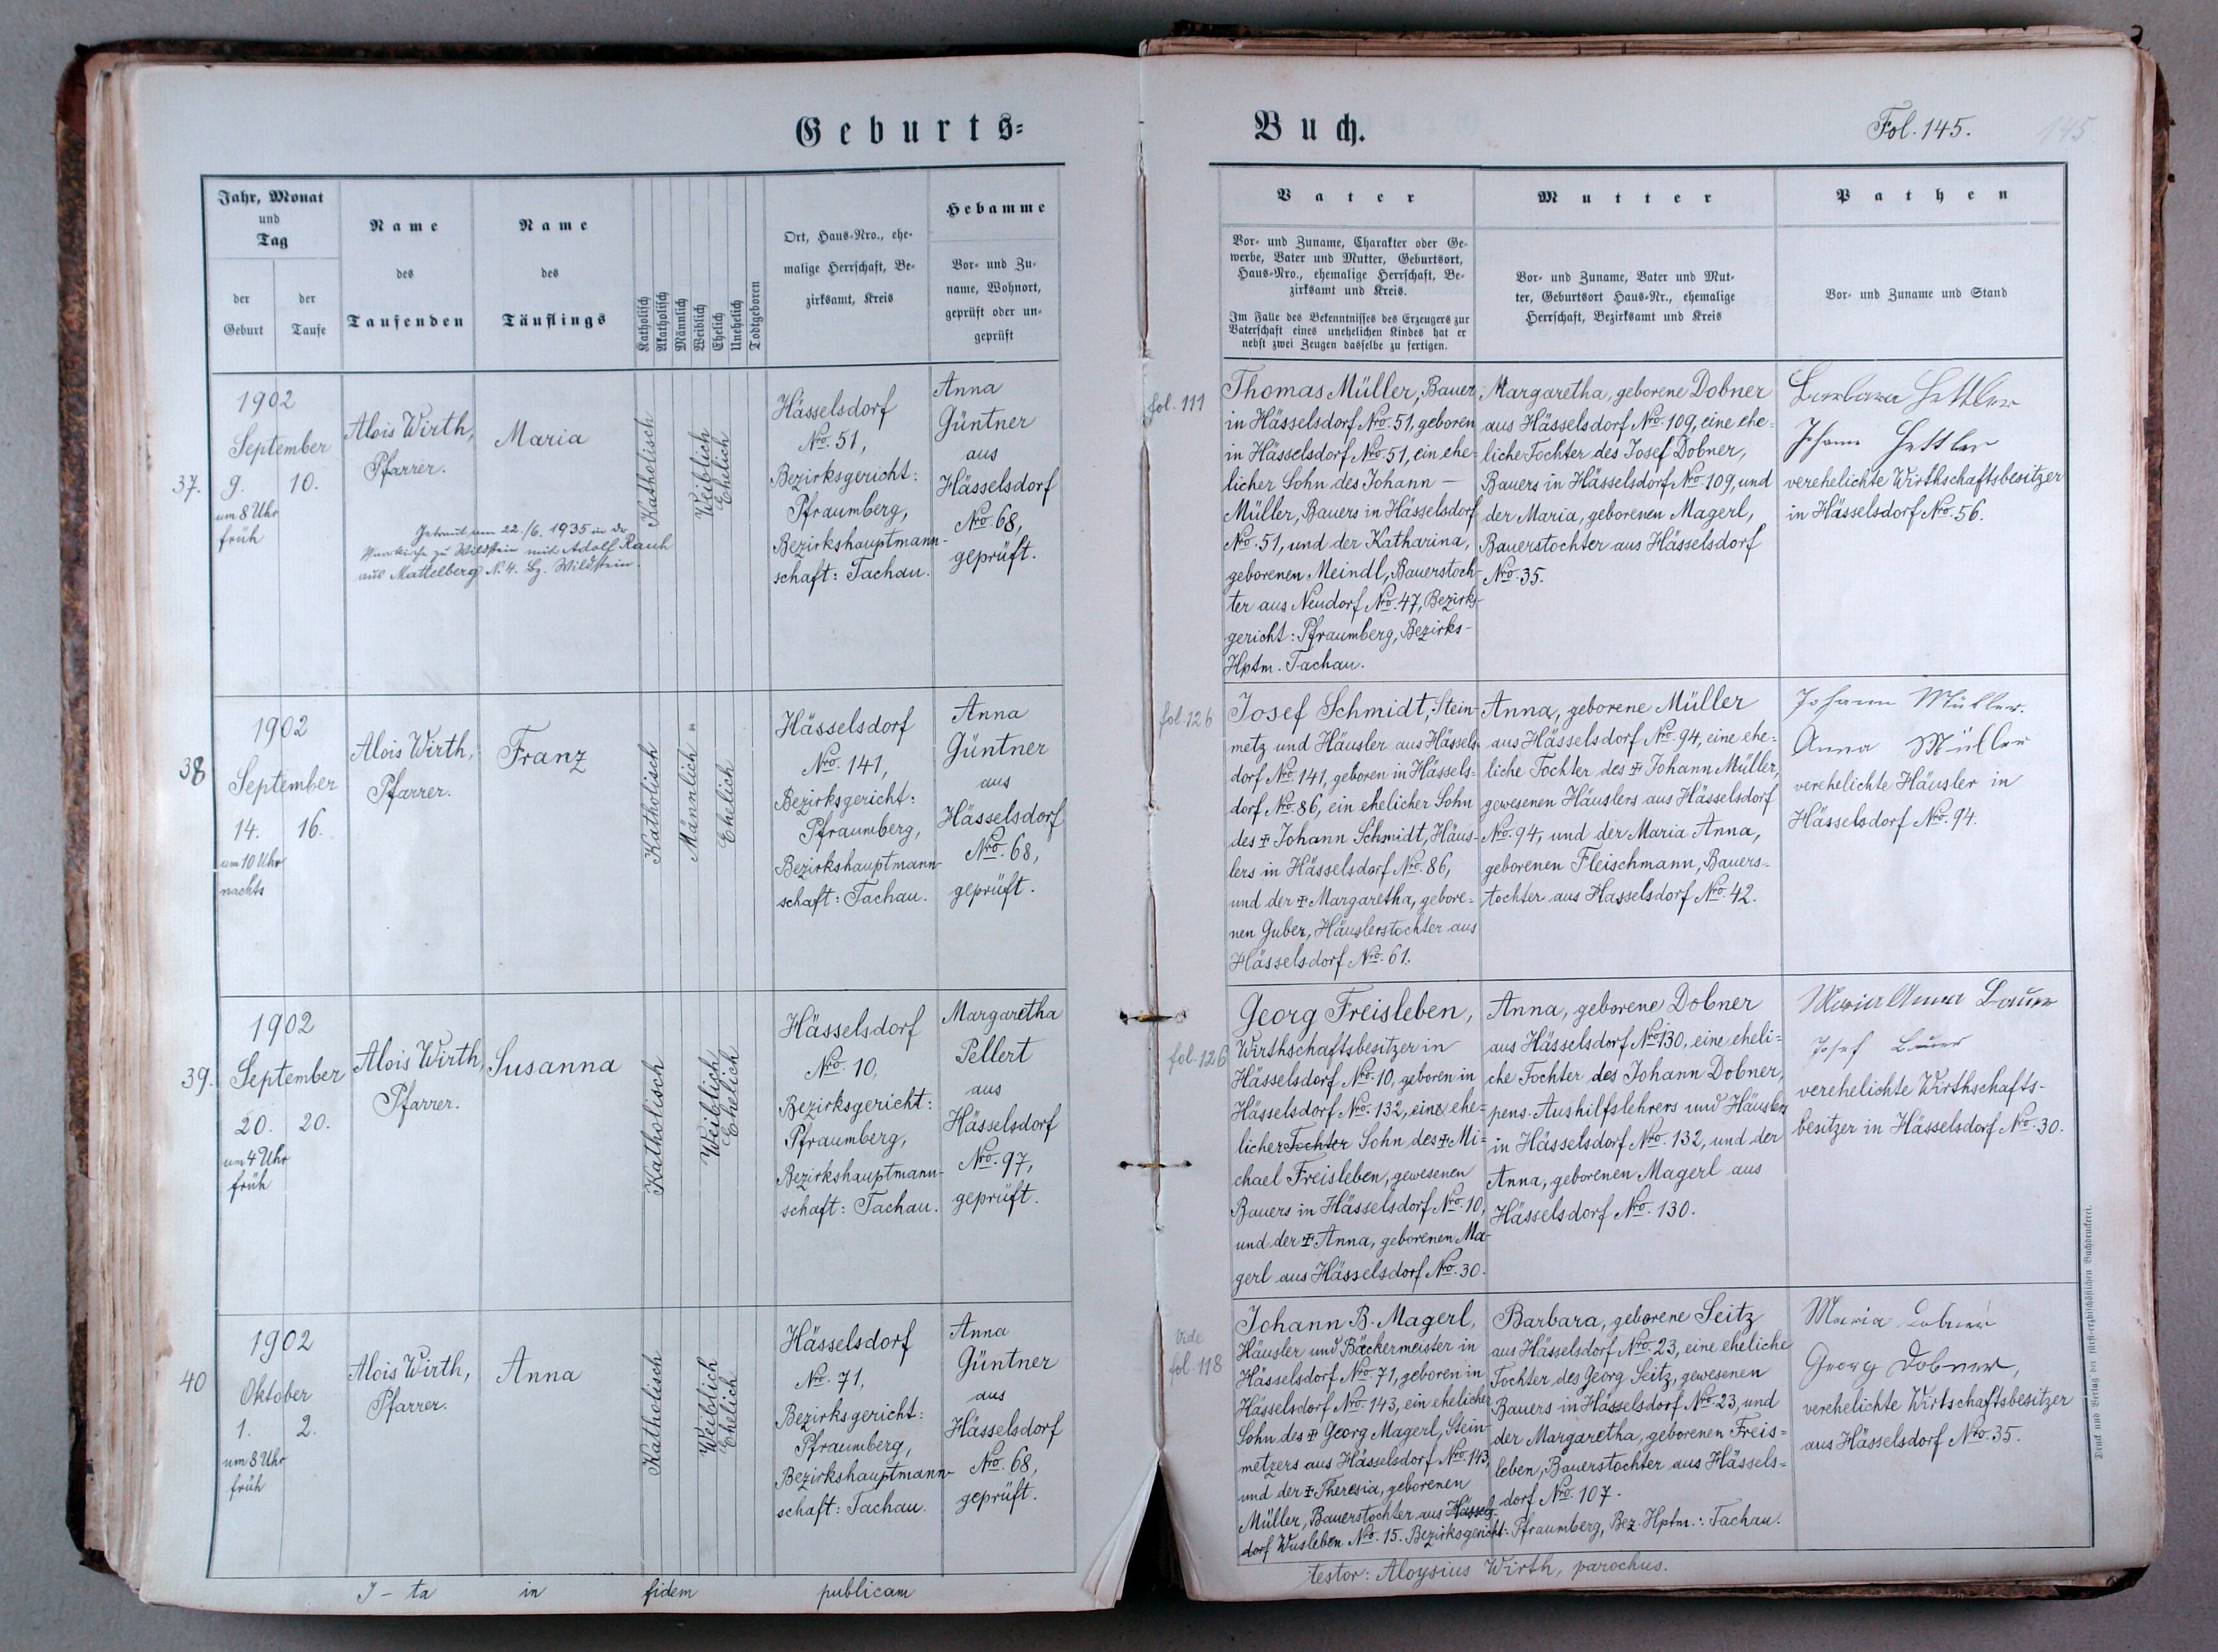 Geburts=
Buch.
Fol. 145.
145
Jahr, Monat
und
Tag
der
Geburt
der
Taufe
Name
des
Taufenden
Name
des
Täuflings
Katholisch
Akatholisch
Männlich
Weiblich
Ehelich
Unehelich
Todtgeboren
Ort, Haus-Nro., ehe-
malige Herrschaft, Be-
zirksamt, Kreis
Hebamme
Vor- und Zu-
name, Wohnort,
geprüft oder un-
geprüft
Vater
Vor- und Zuname, Charakter oder Ge-
werbe, Vater und Mutter, Geburtsort,
Haus-Nro., ehemalige Herrschaft, Be-
zirksamt und Kreis.
Im Falle des Bekenntnisses des Erzeugers zur
Vaterschaft eines unehelichen Kindes hat er
nebst zwei Zeugen dasselbe zu fertigen.
Mutter
Vor- und Zuname, Vater und Mut-
ter, Geburtsort Haus-Nr., ehemalige
Herrschaft, Bezirksamt und Kreis
Pathen
Vor- und Zuname und Stand
37.
1902
September
9. 10.
um 8 Uhr
früh
Alois Wirth,
Pfarrer.
Maria
Getraut am 22./6. 1935 in der
Pfarrkirche zu Wildstein mit Adolf Rauh
aus Mattelberg N. 4. Bz. Wildstein.
Katholisch
Weiblich
Ehelich
Hässelsdorf
Nro. 51,
Bezirksgericht:
Pfraumberg,
Bezirkshauptmann-
schaft: Tachau.
Anna
Güntner
aus
Hässelsdorf
Nro. 68,
geprüft.
fol. 111
Thomas Müller, Bauer
in Hässelsdorf Nro. 51, geboren
in Hässelsdorf Nro. 51, ein ehe-
licher Sohn des Johann —
Müller, Bauers in Hässelsdorf
Nro. 51, und der Katharina,
geborenen Meindl, Bauerstoch-
ter aus Neudorf Nro. 47, Bezirks-
gericht: Pfraumberg, Bezirks-
Hptm. Tachau.
Margaretha, geborene Dobner
aus Hässelsdorf Nro. 109, eine ehe-
liche Tochter des Josef Dobner,
Bauers in Hässelsdorf Nro. 109, und
der Maria, geborenen Magerl,
Bauerstochter aus Hässelsdorf
Nro. 35.
Barbara Hettler
Johann Hettler
verehelichte Wirthschaftsbesitzer
in Hässelsdorf Nro. 56.
38
1902
September
14. 16.
um 10 Uhr
nachts
Alois Wirth,
Pfarrer.
Franz
Katholisch
Männlich
Ehelich
Hässelsdorf
Nro. 141,
Bezirksgericht:
Pfraumberg,
Bezirkshauptmann-
schaft: Tachau.
Anna
Güntner
aus
Hässelsdorf
Nro. 68,
geprüft.
fol. 126
Josef Schmidt, Stein-
metz und Häusler aus Hässels-
dorf Nro. 141, geboren in Hässels-
dorf Nro. 86, ein ehelicher Sohn
des † Johann Schmidt, Häus-
lers in Hässelsdorf Nro. 86,
und der † Margaretha, gebore-
nen Guber, Häuslerstochter aus
Hässelsdorf Nro. 61.
Anna, geborene Müller
aus Hässelsdorf Nro. 94, eine ehe-
liche Tochter des † Johann Müller,
gewesenen Häuslers aus Hässelsdorf
Nro. 94, und der Maria Anna,
geborenen Fleischmann, Bauers-
tochter aus Hasselsdorf Nro. 42.
Johann Müller.
Anna Müller
verehelichte Häusler in
Hässelsdorf Nro. 94.
39.
1902
September
20. 20.
um 4 Uhr
früh
Alois Wirth,
Pfarrer.
Susanna
Katholisch
Weiblich
Ehelich
Hässelsdorf
Nro. 10,
Bezirksgericht:
Pfraumberg,
Bezirkshauptmann-
schaft: Tachau.
Margaretha
Pellert
aus
Hässelsdorf
Nro. 97,
geprüft.
fol. 126
Georg Freisleben,
Wirthschaftsbesitzer in
Hässelsdorf Nro. 10, geboren in
Hässelsdorf Nro. 132, eine ehe-
licher Tochter Sohn des † Mi-
chael Freisleben, gewesenen
Bauers in Hässelsdorf Nro. 10,
und der † Anna, geborenen Ma-
gerl aus Hässelsdorf Nro. 30.
Anna, geborene Dobner
aus Hässelsdorf Nro. 130, eine eheli-
che Tochter des Johann Dobner,
pens. Aushilfslehrers und Häusler
in Hässelsdorf Nro. 132, und der
Anna, geborenen Magerl aus
Hässelsdorf Nro. 130.
Maria Anna Bauer
Josef Bauer
verehelichte Wirthschafts-
besitzer in Hässelsdorf Nro. 30.
40
1902
Oktober
1. 2.
um 8 Uhr
früh
Alois Wirth,
Pfarrer.
Anna
Katholisch
Weiblich
Ehelich
Hässelsdorf
Nro. 71,
Bezirksgericht:
Pfraumberg,
Bezirkshauptmann-
schaft: Tachau.
Anna
Güntner
aus
Hässelsdorf
Nro. 68,
geprüft.
vide
fol. 118
Johann B. Magerl,
Häusler und Bäckermeister in
Hässelsdorf Nro. 71, geboren in
Hässelsdorf Nro. 143, ein ehelicher
Sohn des † Georg Magerl, Stein-
metzers aus Hässelsdorf Nro. 143,
und der † Theresia, geborenen
Müller, Bauerstochter aus Hässels-
dorf Wusleben Nro. 15. Bezirksgericht: Pfraumberg, Bez. Hptm.: Tachau.
Barbara, geborene Seitz
aus Hässelsdorf Nro. 23, eine eheliche
Tochter des Georg Seitz, gewesenen
Bauers in Hässelsdorf Nro. 23, und
der Margaretha, geborenen Freis-
leben, Bauerstochter aus Hässels-
dorf Nro. 107.
Maria Dobner
Georg Dobner,
verehelichte Wirtschaftsbesitzer
aus Hässelsdorf Nro. 35.
I-ta in fidem publicam
testor: Aloysius Wirth, parochus.
Druck und Verlag der fürst-erzbischöflichen Buchdruckerei.